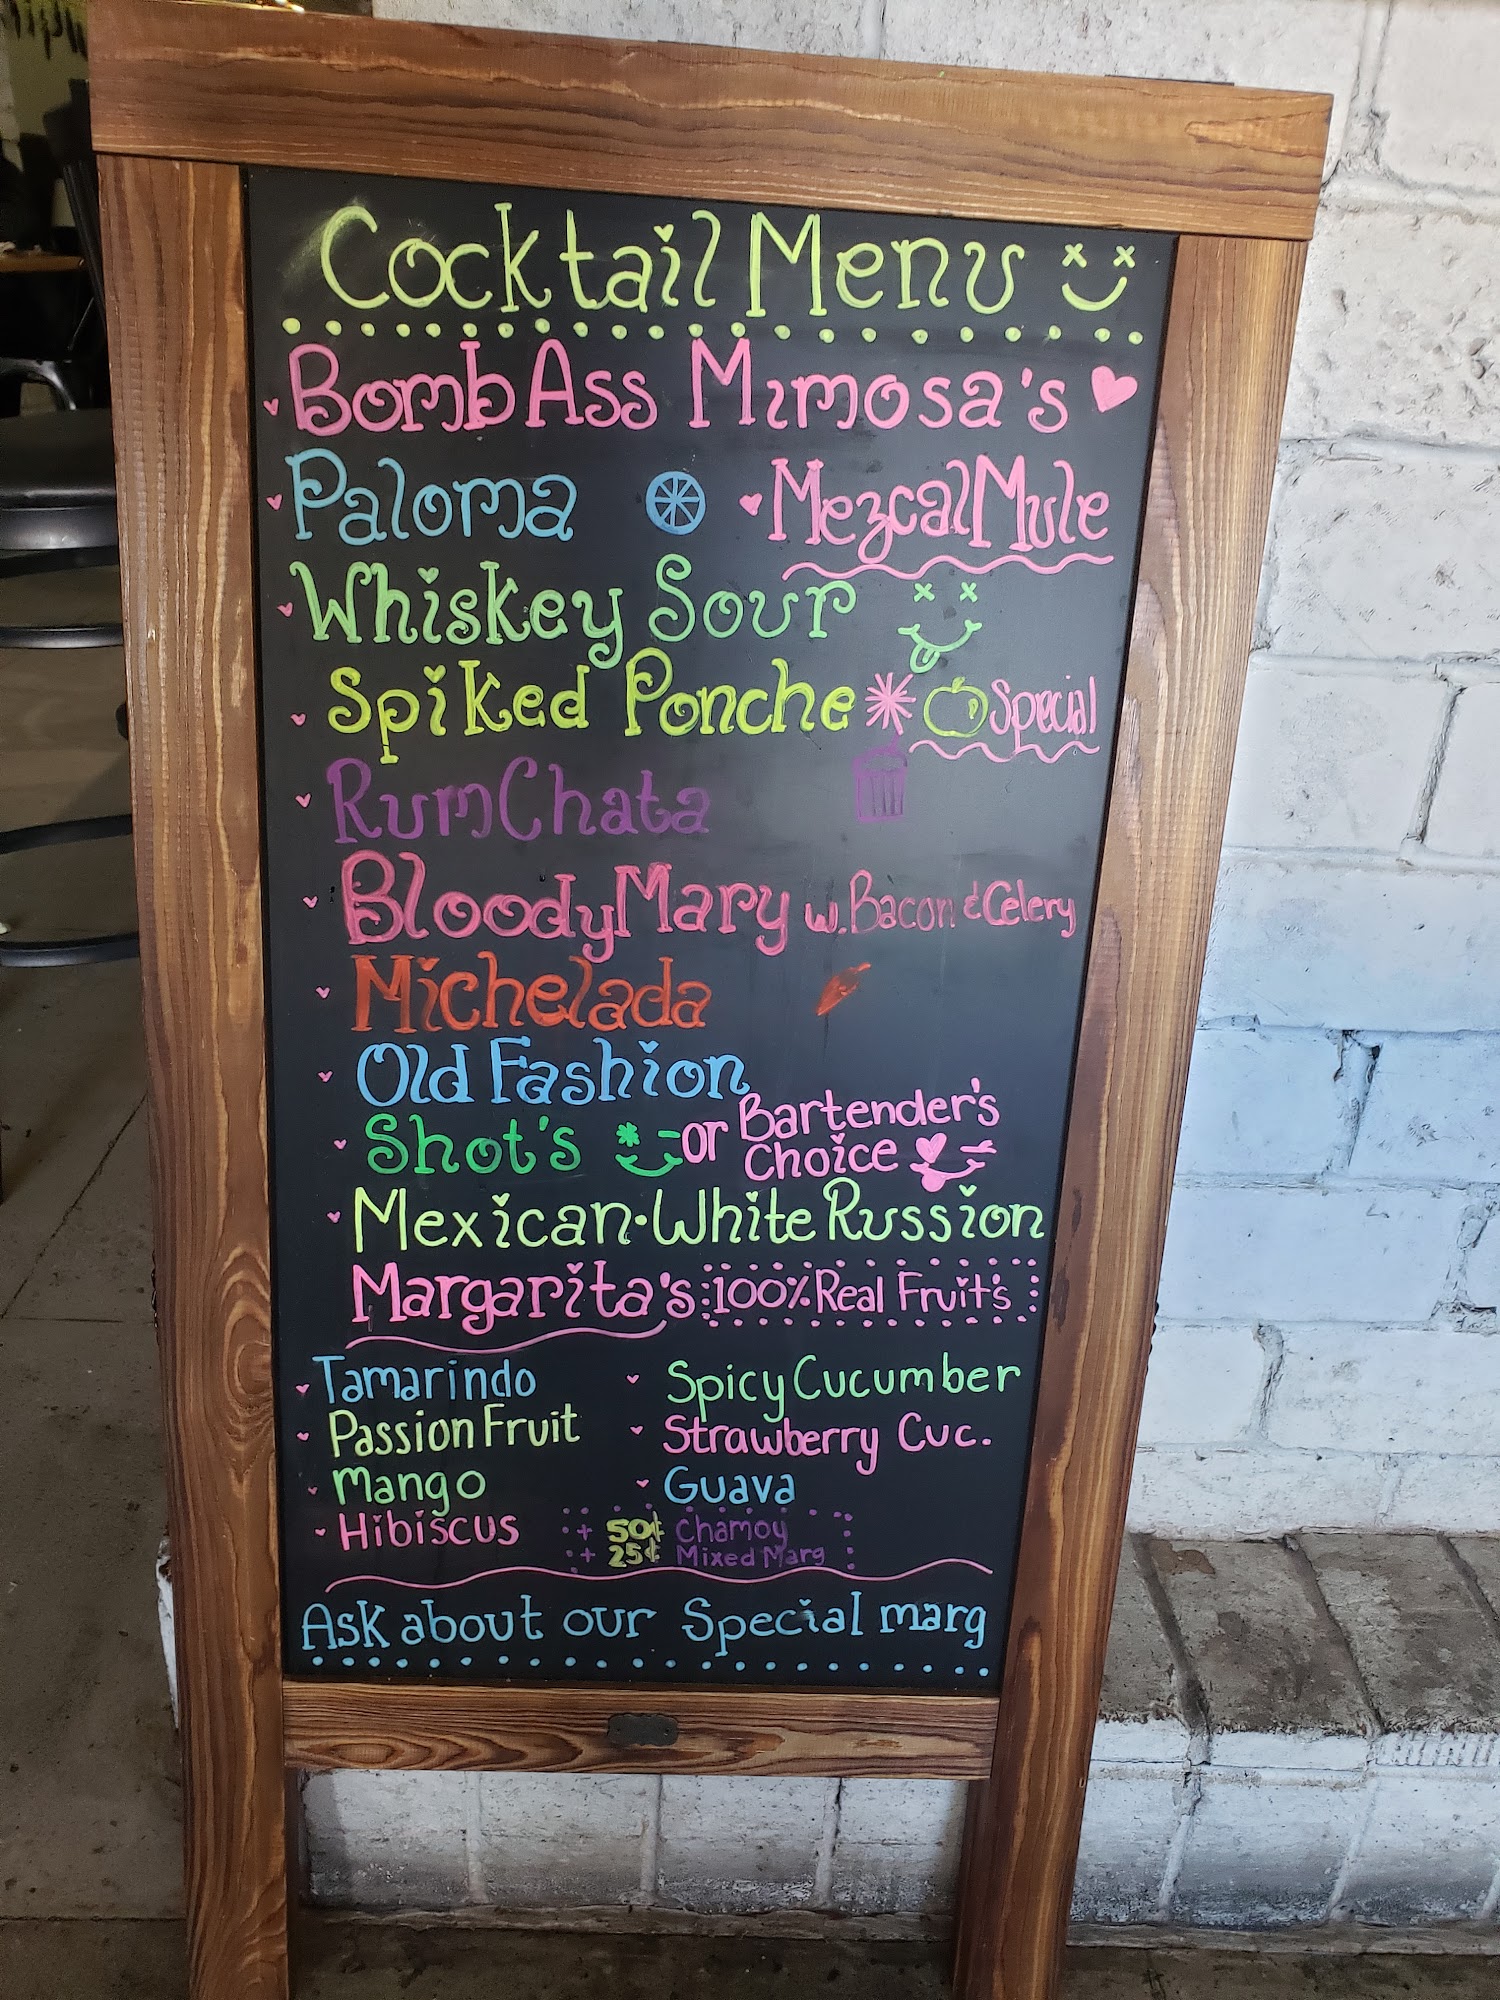 Cocktail Menu
BombAss Mimosa's
Paloma
Mezcal Mule
Whiskey Sour
Spiked Ponche Special
RumChata
Bloody Mary w. Bacon & Celery
Michelada
Old Fashion
Shot's or Bartender's Choice
Mexican·White Russion
Margarita's 100% Real Fruit's
Tamarindo
Spicy Cucumber
Passion Fruit
Strawberry Cuc.
Mango
Guava
Hibiscus
+ 50¢ Chamoy
+ 25¢ Mixed Marg
Ask about our Special marg